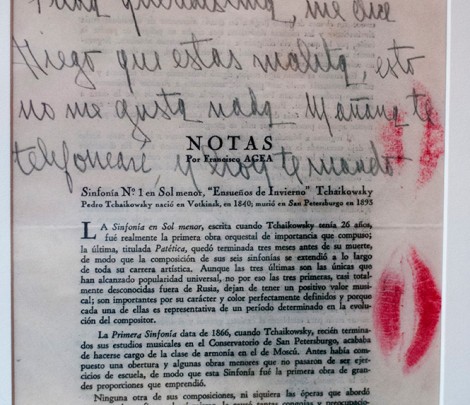 queridísima, me dice
Diego que estas malita, esto
no me gusta nada. Mañana te
telefonearé, y hoy te mando
NOTAS
Por Francisco AGEA
Sinfonía Nº 1 en Sol menor, "Ensueños de Invierno" Tchaikowsky
Pedro Tchaikowsky nació en Votkinsk, en 1840; murió en San Petersburgo en 1893
LA Sinfonía en Sol menor, escrita cuando Tchaikowsky tenía 26 años,
fué realmente la primera obra orquestal de importancia que compuso;
la última, titulada Patética, quedó terminada tres meses antes de su muerte,
de modo que la composición de sus seis sinfonías se extendió a lo largo
de toda su carrera artística. Aunque las tres últimas son las únicas que
han alcanzado popularidad universal, no por eso las tres primeras, casi total-
mente desconocidas fuera de Rusia, dejan de tener un positivo valor musi-
cal; son importantes por su carácter y color perfectamente definidos y porque
cada una de ellas es representativa de un período determinado en la evolu-
ción del compositor.
La Primera Sinfonía data de 1866, cuando Tchaikowsky, recién termina-
dos sus estudios musicales en el Conservatorio de San Petersburgo, acababa
de hacerse cargo de la clase de armonía en el de Moscú. Antes había com-
puesto una obertura y algunas obras menores que no pasaron de ser ejer-
cicios de escuela, de modo que esta Sinfonía fué la primera obra de gran-
des proporciones que emprendió.
Ninguna otra de sus composiciones, ni siquiera las óperas que abordó